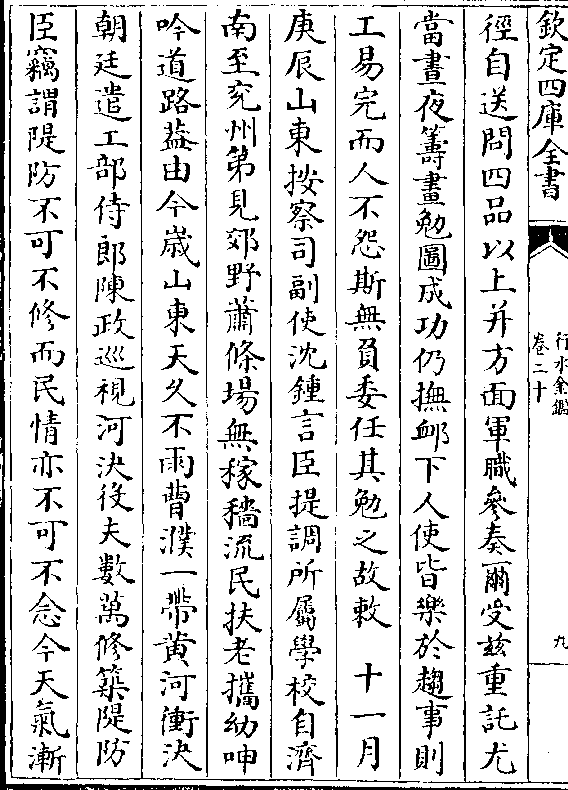 欽定四庫全書
行水金鑑
卷二十
九
徑自送問四品以上并方面軍職參奏爾受兹重託尤
當晝夜籌畫勉圖成功仍撫䘏下人使皆樂於趨事則
工易完而人不怨斯無負委任其勉之故敕　十一月
庚辰山東按察司副使沈鍾言臣提調所屬學校自濟
南至兖州第見郊野蕭條場無稼穡流民扶老攜幼呻
吟道路葢由今歲山東天久不雨曹濮一帶黄河衝決
朝廷遣工部侍郎陳政巡視河決役夫數萬修築隄防
臣竊謂隄防不可不修而民情亦不可不念今天氣漸